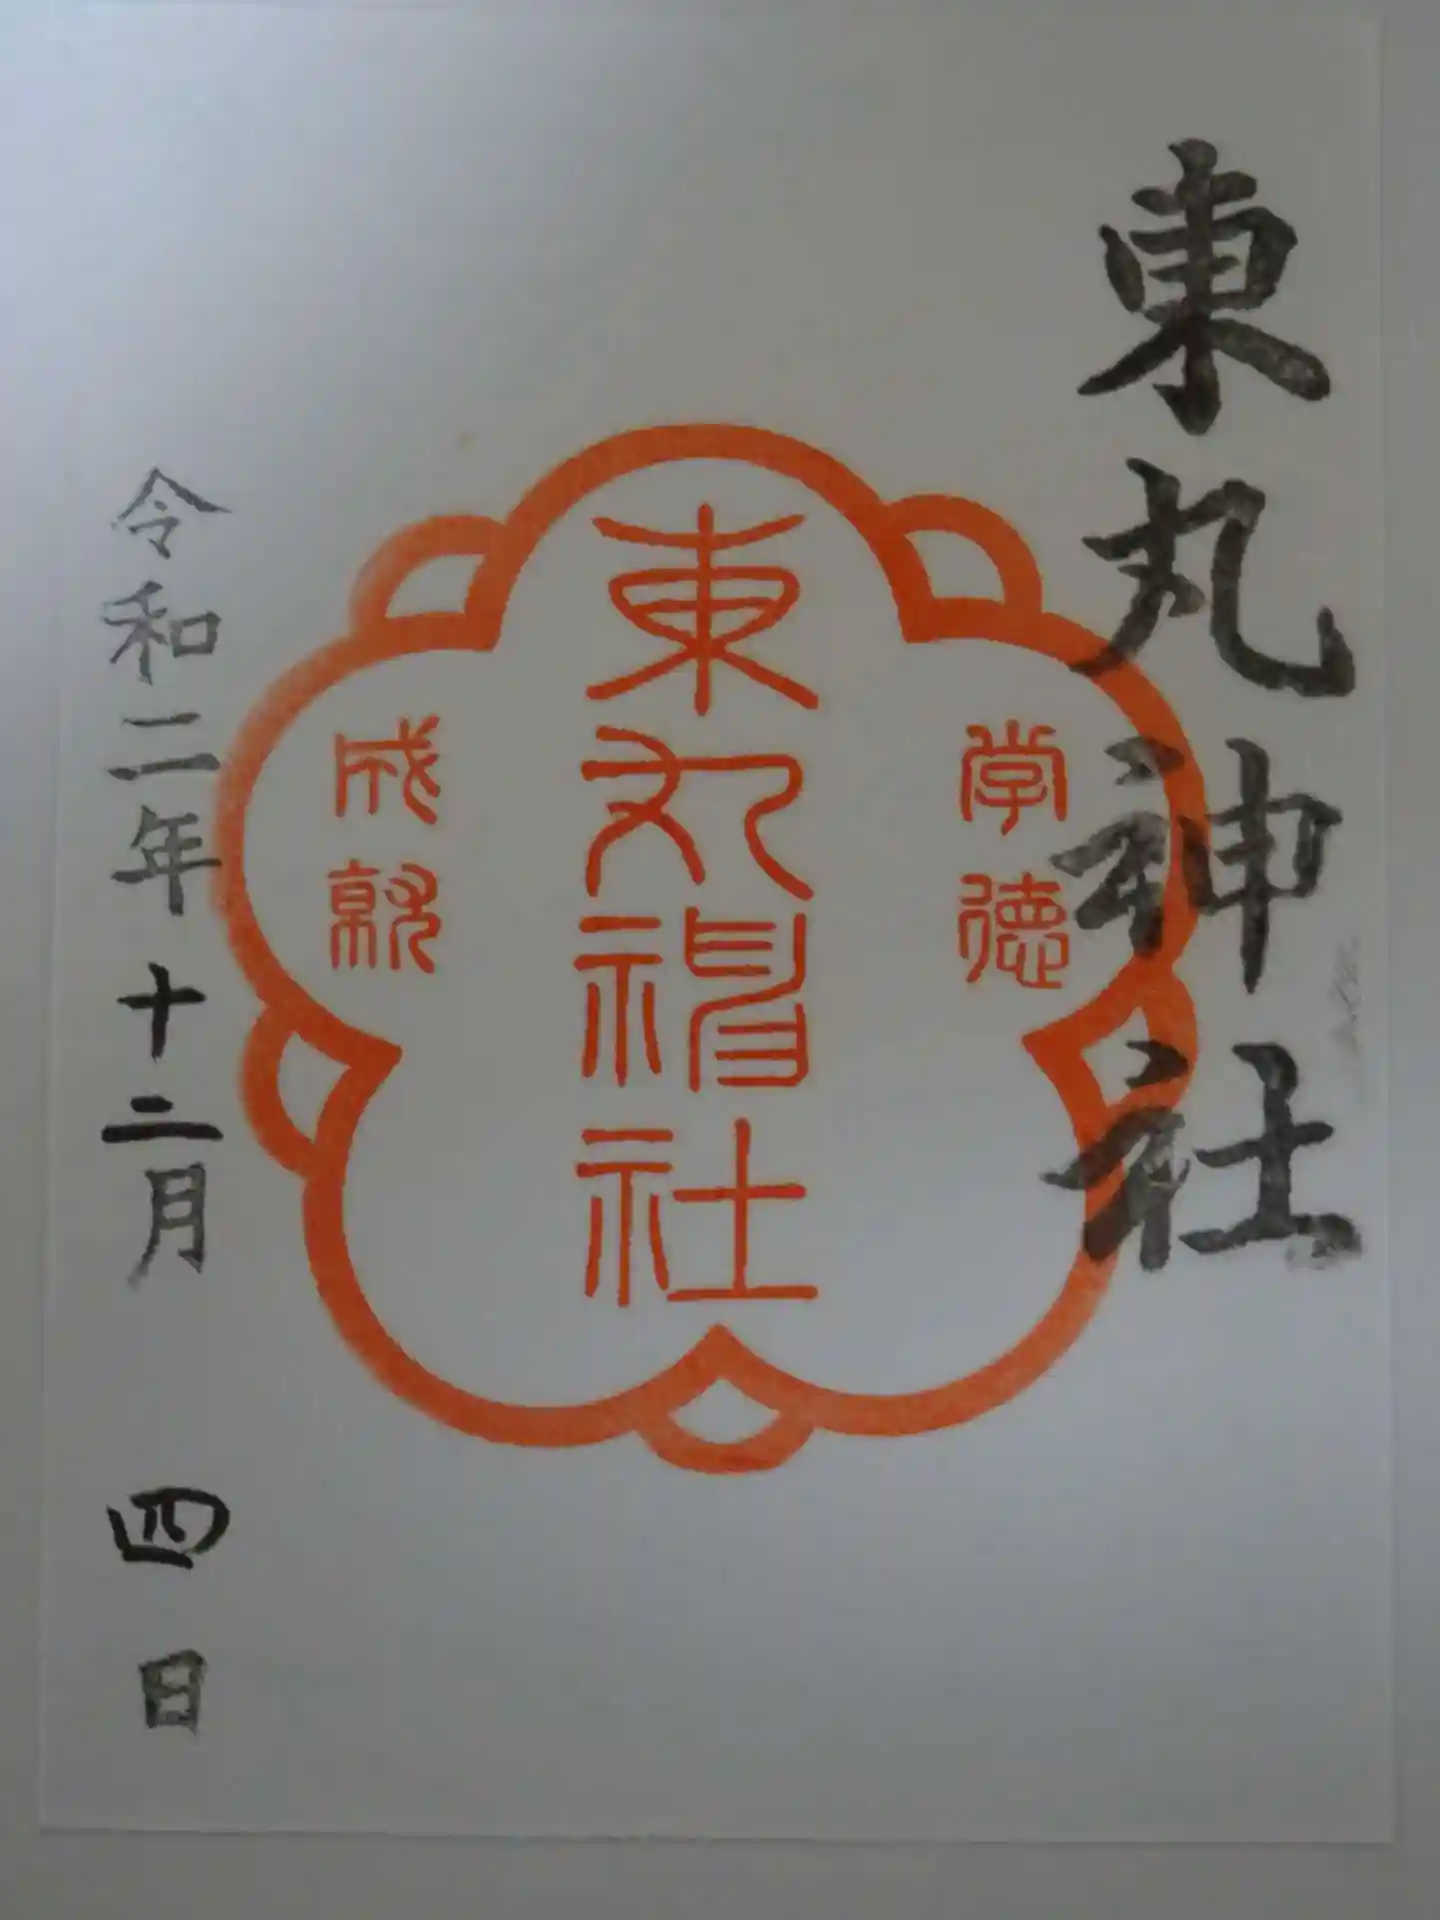 東丸神社
学徳
東丸神社
成就
令和二年十二月四日